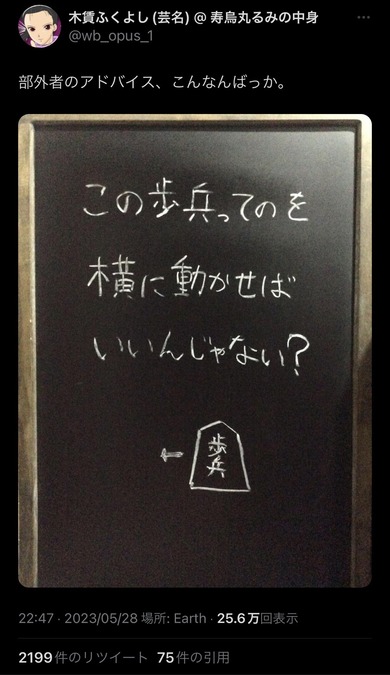 木賃ふくよし (芸名) @ 寿烏丸るみの中身
@wb_opus_1
部外者のアドバイス、こんなんばっか。
この歩兵ってのを
横に動かせば
いいんじゃない?
歩兵
22:47 · 2023/05/28 場所: Earth · 25.6万回表示
2199 件のリツイート 75 件の引用